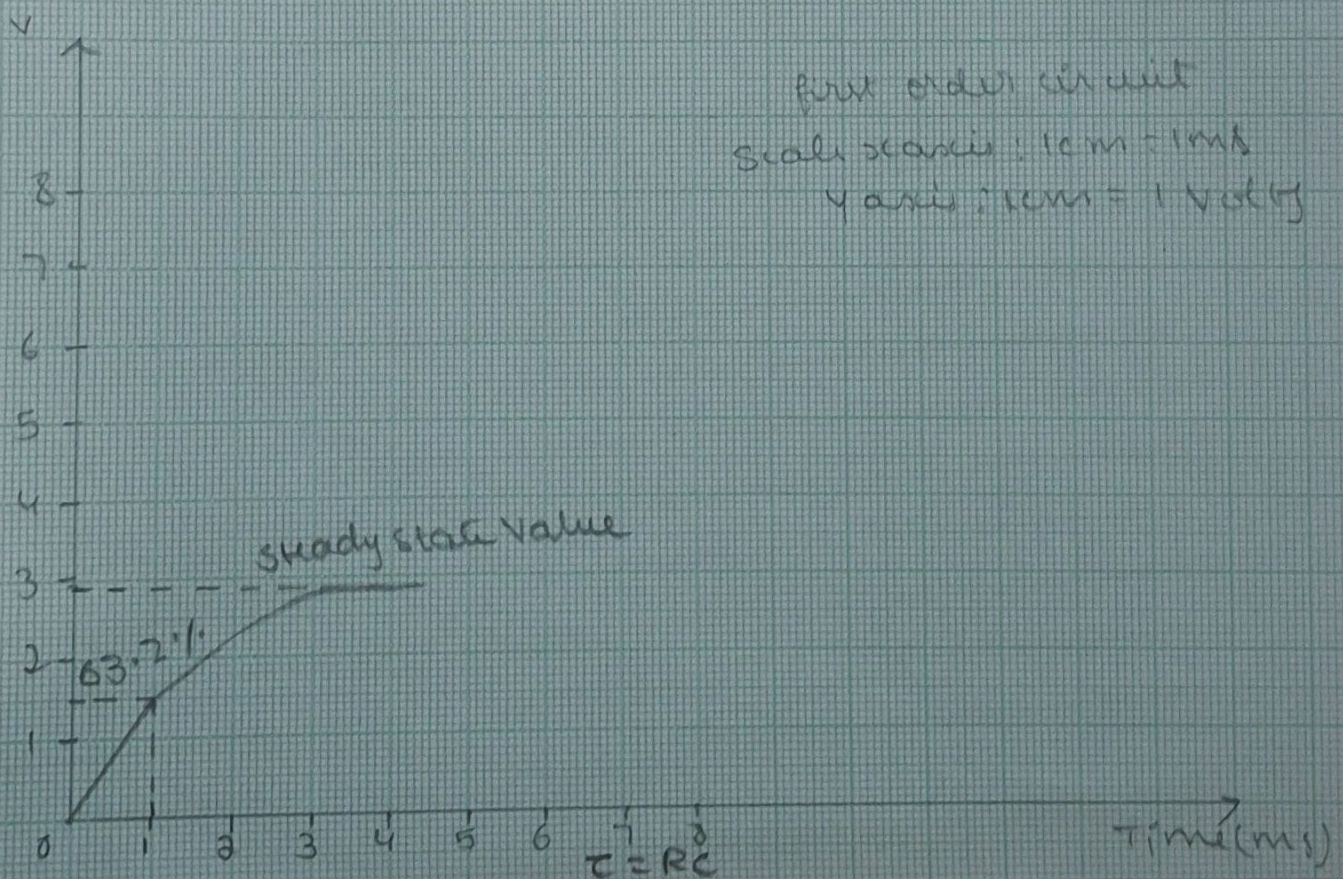 V
first order circuit
scale xaxis : 1cm = 1ms
y axis : 1cm = 1 volts
8
7
6
5
4
steady state value
3
63.2%
2
1
0 1 2 3 4 5 6 7 8
τ = RC
Time(ms)